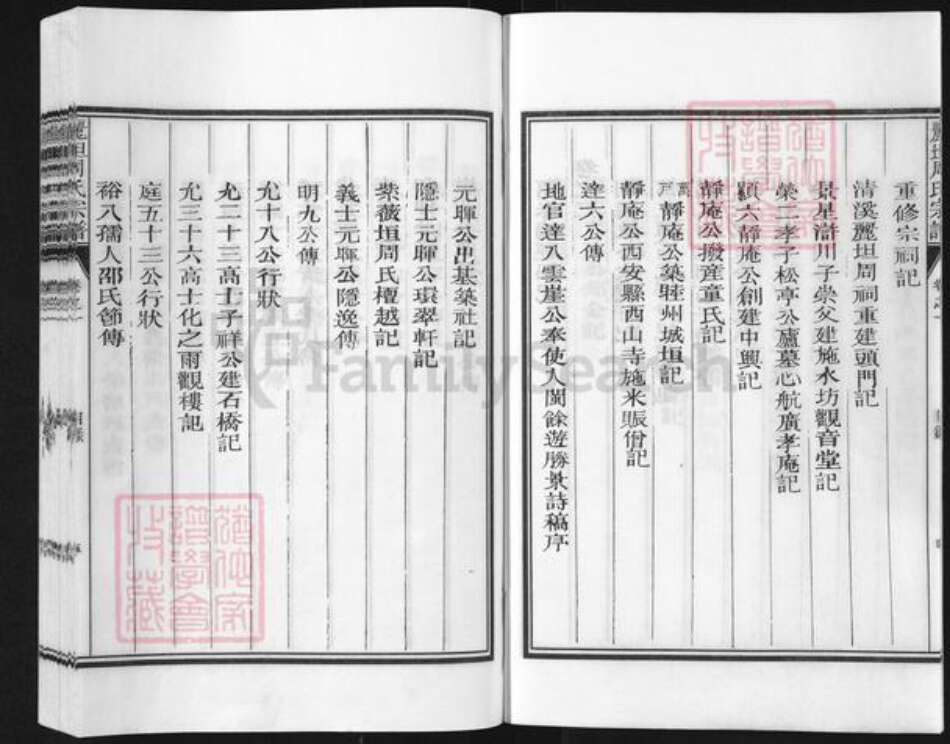 重修宗祠記
清溪麗坦周祠重建頭門記
景星滸川子崇父建施水坊觀音堂記
榮二孝子松亭公廬墓心航廣孝庵記
穎六靜庵公創建中興記
靜庵公撥産童氏記
靜庵公築睦州城垣記
靜庵公西安縣西山寺施米賑僧記
達六公傳
地官達八雲崖公奉使入閩餘遊勝景詩稿序
元暉公出基築社記
隱士元暉公環翠軒記
紫薇垣周氏檀越記
義士元暉公隱逸傳
明九公傳
允十八公行狀
允二十三高士子祥公建石橋記
允三十六高士化之雨觀樓記
庭五十三公行狀
裕八孺人邵氏節傳
麗坦周氏宗譜
FamilySearch